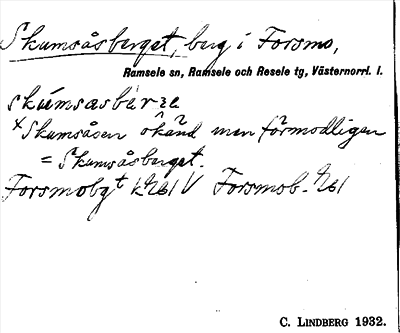 Skumsåsberget, berg i Forsmo,
Ramsele sn, Ramsele och Resele tg, Västernorrl. l.
skúmsasbärʒe
× Skumsåsen okänd men förmodligen
= Skumsåsberget.
Forsmobgt V Forsmob.
C. LINDBERG 1932.